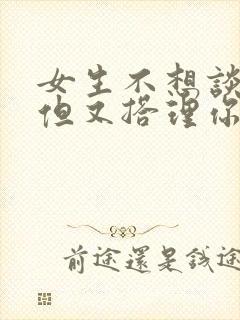 女生不想談
但又搭理你
前途還是錢途